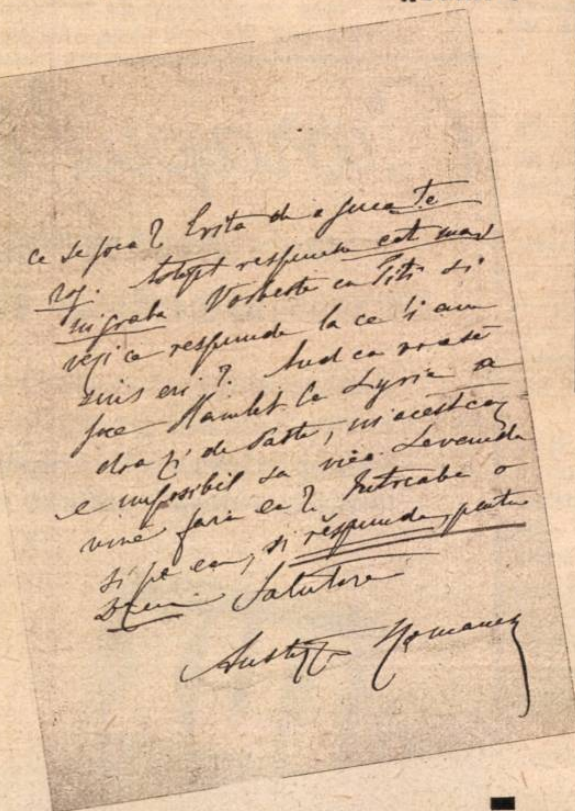 ce se joca? Evita de a juca te
rog. Astept respunsu cat mai
in graba Vorbeste cu Titi si
veji ce respunde la ce li am
zuis eri? Aud ca vrea se
joce Hamlet la Lyric a
doa zi de Paste, in acest caz
e imposibil sa vie. Levenda
vine fara ea? Intreab'o
si pe ea, si respunde, pentru
Salutare
Aristizza Romanescu